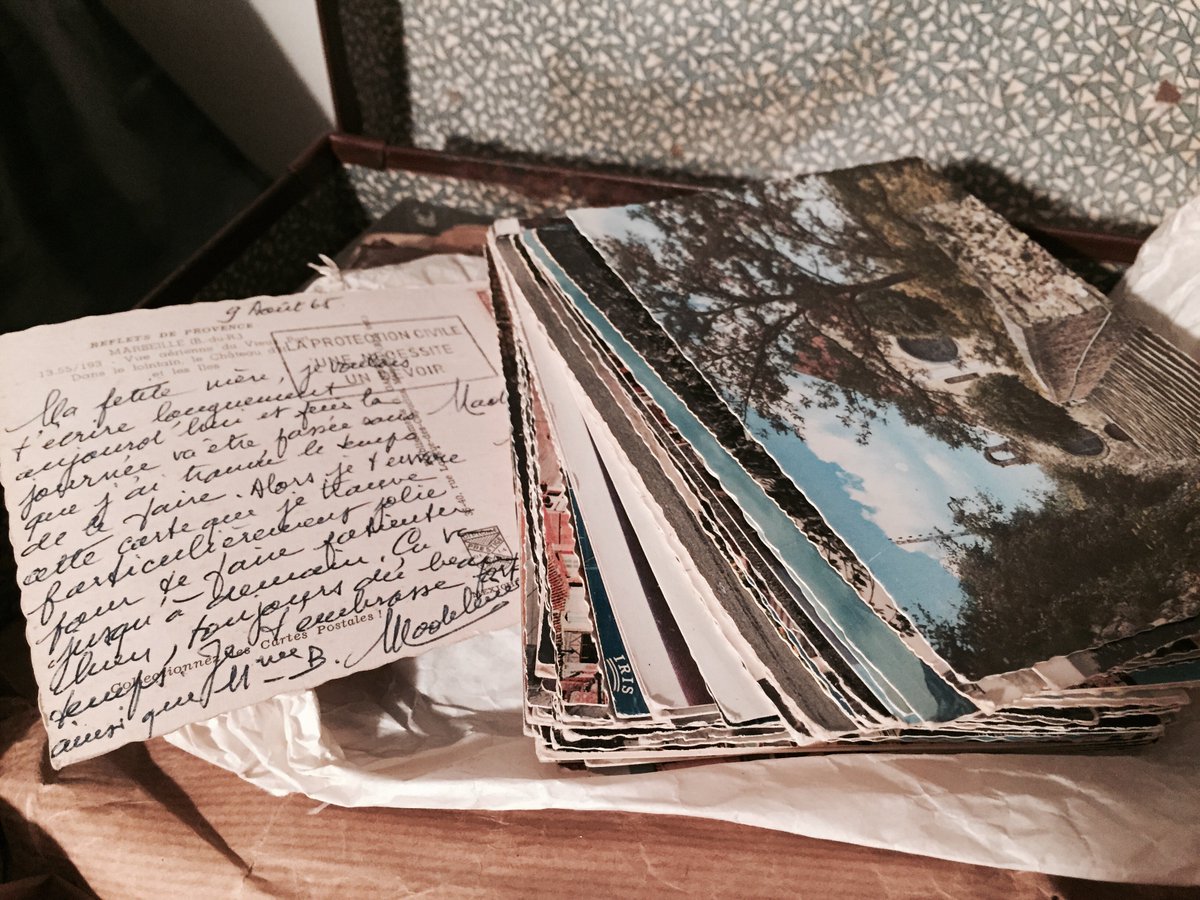 9 Août 65
REFLETS DE PROVENCE
MARSEILLE (B.-du-R.)
13.55/193 Vue aérienne du Vieux
Dans le lointain, le Château d'
et les Iles
LA PROTECTION CIVILE
UNE NECESSITE
UN DEVOIR
Ma petite mère, je voulais
t'écrire longuement
aujourd'hui et puis la
journée va être passée sans
que j'ai trouvé le temps
de le faire. Alors je t'envoie
cette carte que je trouve
particulièrement jolie
pour te faire patienter
jusqu'à demain. Ça va
bien, toujours du beau
temps. Je t'embrasse fort
ainsi que Mme B. Madeleine
Collectionnez les Cartes Postales !
Mad
IRIS